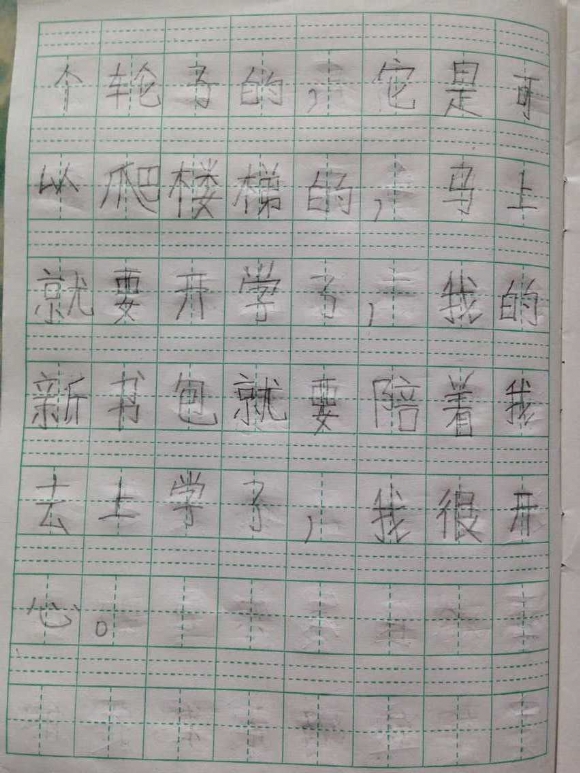 个轮子的，它是可
以爬楼梯的，马上
就要开学了，我的
新书包就要陪着我
去上学了，我很开
心。